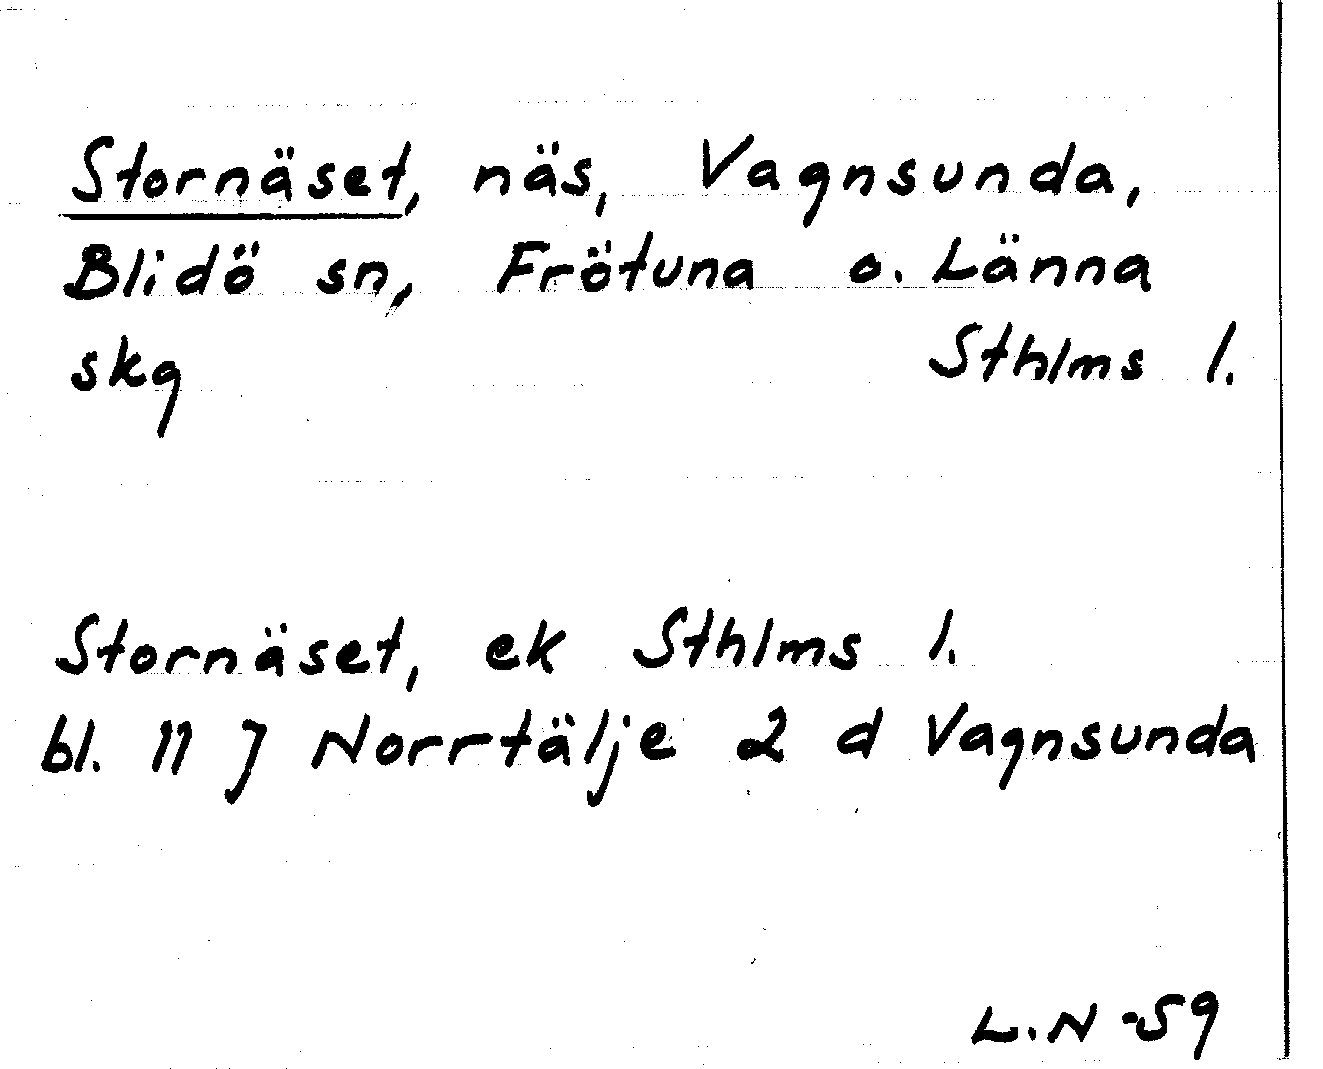 Stornäset, näs, Vagnsunda,
Blidö sn, Frötuna o. Länna
skg Sthlms l.
Stornäset, ek Sthlms l.
bl. 11 J Norrtälje 2 d Vagnsunda
L.N -59